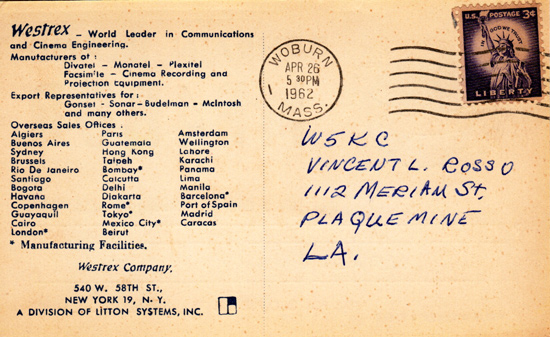 Westrex - World Leader in Communications
and Cinema Engineering.
Manufacturers of :
Divatel - Monatel - Plexitel
Facsimile - Cinema Recording and
Projection Equipment.
Export Representatives for :
Gonset - Sonar - Budelman - McIntosh
and many others.
Overseas Sales Offices :
Algiers Paris Amsterdam
Buenos Aires Guatemala Wellington
Sydney Hong Kong Lahore
Brussels Taipeh Karachi
Rio De Janeiro Bombay* Panama
Santiago Calcutta Lima
Bogota Delhi Manila
Havana Djakarta Barcelona*
Copenhagen Rome* Port of Spain
Guayaquil Tokyo* Madrid
Cairo Mexico City* Caracas
London* Beirut
* Manufacturing Facilities.
Westrex Company.
540 W. 58TH ST.,
NEW YORK 19, N. Y.
A DIVISION OF LITTON SYSTEMS, INC.
WOBURN
APR 26
5 30 PM
1962
MASS.
U.S. POSTAGE 3¢
IN GOD WE TRUST
LIBERTY
W5KC
VINCENT L. ROSSO
1112 MERIAM St.
PLAQUEMINE
LA.